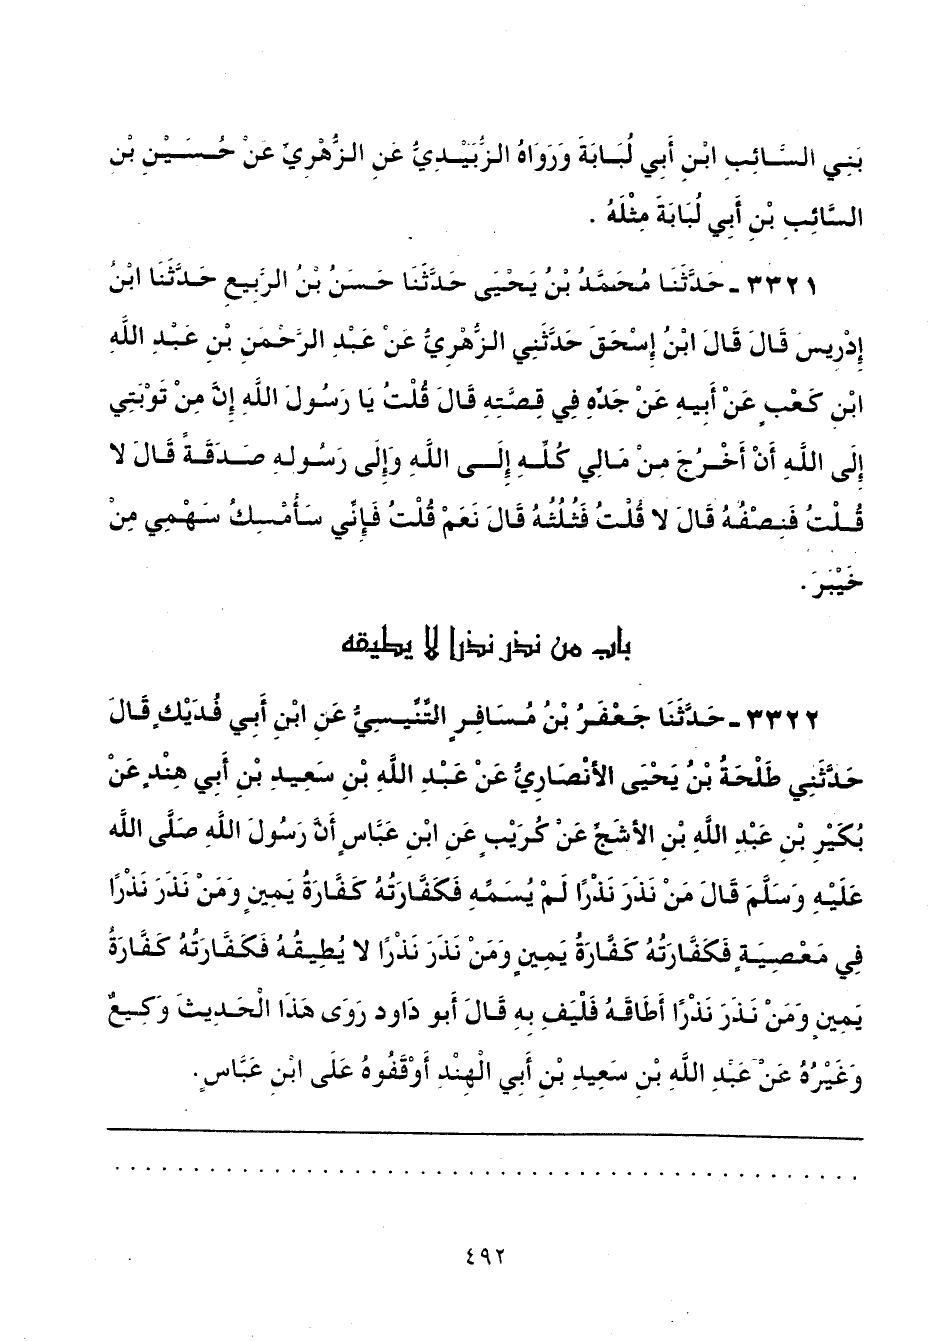 بَنِي السَّائِبِ ابْنِ أَبِي لُبَابَةَ وَرَوَاهُ الزُّبَيْدِيُّ عَنِ الزُّهْرِيِّ عَنْ حُسَيْنِ بْنِ
السَّائِبِ بْنِ أَبِي لُبَابَةَ مِثْلَهُ .
٣٣٢١ - حَدَّثَنَا مُحَمَّدُ بْنُ يَحْيَى حَدَّثَنَا حَسَنُ بْنُ الرَّبِيعِ حَدَّثَنَا ابْنُ
إِدْرِيسَ قَالَ قَالَ ابْنُ إِسْحَقَ حَدَّثَنِي الزُّهْرِيُّ عَنْ عَبْدِ الرَّحْمَنِ بْنِ عَبْدِ اللَّهِ
ابْنِ كَعْبٍ عَنْ أَبِيهِ عَنْ جَدِّهِ فِي قِصَّتِهِ قَالَ قُلْتُ يَا رَسُولَ اللَّهِ إِنَّ مِنْ تَوْبَتِي
إِلَى اللَّهِ أَنْ أَخْرُجَ مِنْ مَالِي كُلِّهِ إِلَى اللَّهِ وَإِلَى رَسُولِهِ صَدَقَةً قَالَ لَا
قُلْتُ فَنِصْفُهُ قَالَ لَا قُلْتُ فَثُلُثُهُ قَالَ نَعَمْ قُلْتُ فَإِنِّي سَأُمْسِكُ سَهْمِي مِنْ
خَيْبَرَ .
باب من نذر نذرا لا يطيقه
٣٣٢٢ - حَدَّثَنَا جَعْفَرُ بْنُ مُسَافِرٍ التِّنِّيسِيُّ عَنِ ابْنِ أَبِي فُدَيْكٍ قَالَ
حَدَّثَنِي طَلْحَةُ بْنُ يَحْيَى الأَنْصَارِيُّ عَنْ عَبْدِ اللَّهِ بْنِ سَعِيدِ بْنِ أَبِي هِنْدٍ عَنْ
بُكَيْرِ بْنِ عَبْدِ اللَّهِ بْنِ الأَشَجِّ عَنْ كُرَيْبٍ عَنِ ابْنِ عَبَّاسٍ أَنَّ رَسُولَ اللَّهِ صَلَّى اللَّه
عَلَيْهِ وَسَلَّمَ قَالَ مَنْ نَذَرَ نَذْرًا لَمْ يُسَمِّهِ فَكَفَّارَتُهُ كَفَّارَةُ يَمِينٍ وَمَنْ نَذَرَ نَذْرًا
فِي مَعْصِيَةٍ فَكَفَّارَتُهُ كَفَّارَةُ يَمِينٍ وَمَنْ نَذَرَ نَذْرًا لَا يُطِيقُهُ فَكَفَّارَتُهُ كَفَّارَةُ
يَمِينٍ وَمَنْ نَذَرَ نَذْرًا أَطَاقَهُ فَلْيَفِ بِهِ قَالَ أَبو دَاود رَوَى هَذَا الْحَدِيثَ وَكِيعٌ
وَغَيْرُهُ عَنْ عَبْدِ اللَّهِ بْنِ سَعِيدِ بْنِ أَبِي الْهِنْدِ أَوْقَفُوهُ عَلَى ابْنِ عَبَّاسٍ.
٤٩٢